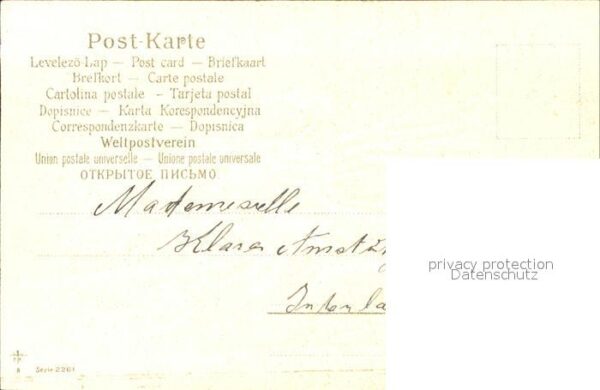 Post-Karte
Levelező-Lap — Post card — Briefkaart
Brefkort — Carte postale
Cartolina postale — Tarjeta postal
Dopisnice — Karta Korespondencyjna
Correspondenzkarte — Dopisnica
Weltpostverein
Union postale universelle — Unione postale universale
ОТКРЫТОЕ ПИСЬМО
Mademoiselle
Klara
privacy protection
Datenschutz
Serie 2261